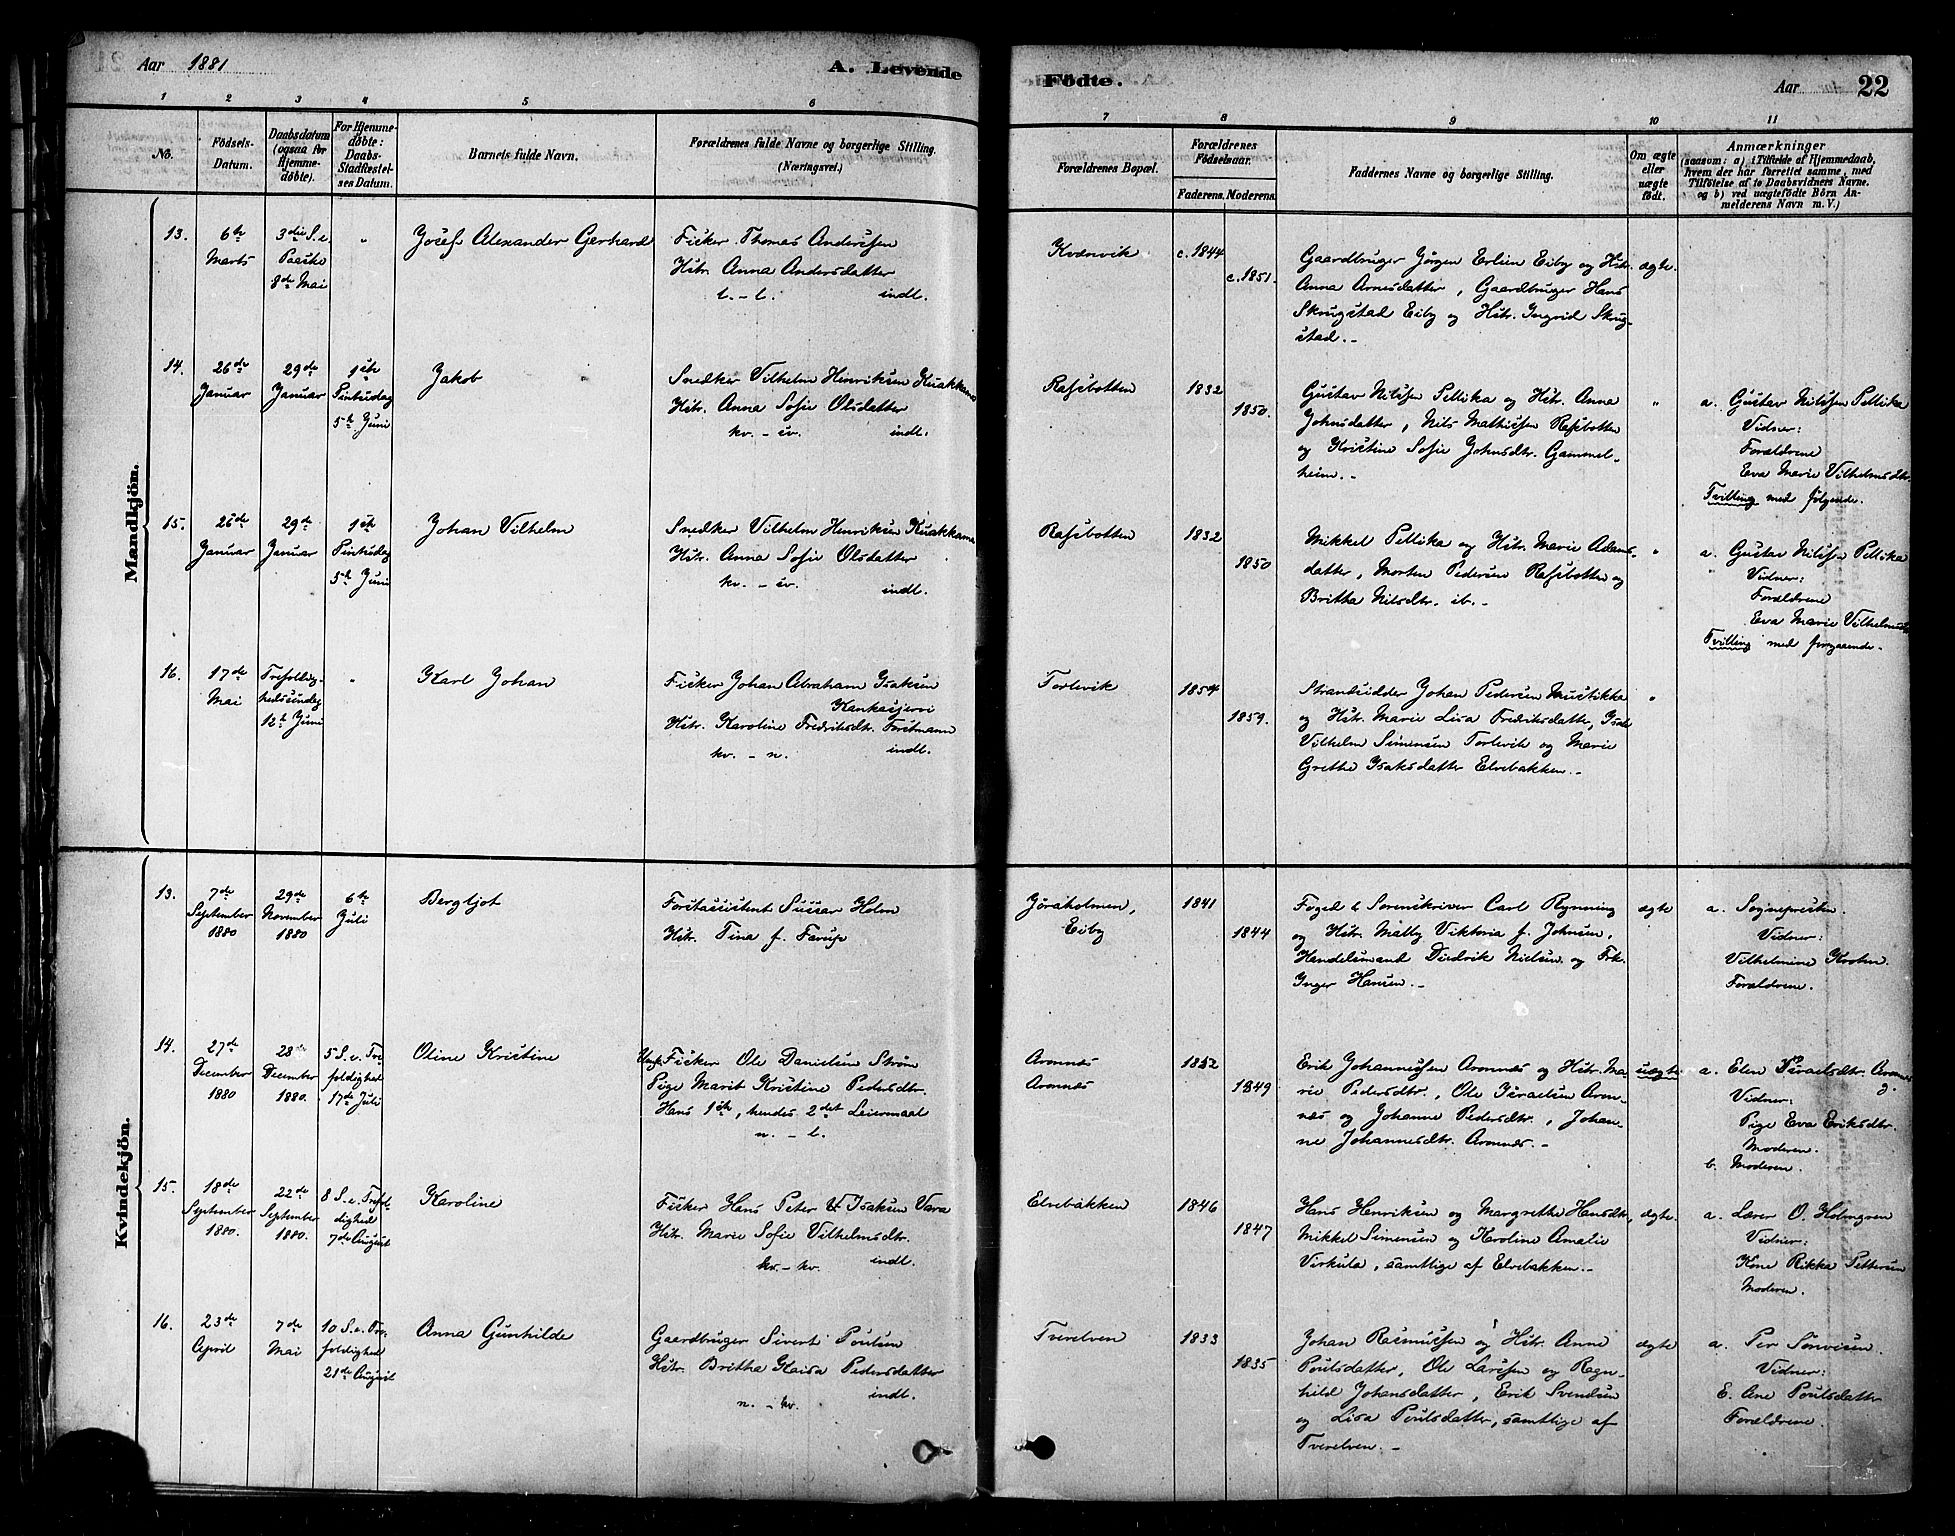 Aar 1881
A. Levende
Födte.
Aar
22
1
2
3
4
5
6
7
8
9
10
11
No.
Födsels-
Datum.
Daabsdatum
(ogsaa for
Hjemme-
döbte).
For Hjemme-
döbte:
Daabs-
Stadfæstel-
ses Datum.
Barnets fulde Navn.
Forældrenes fulde Navne og borgerlige Stilling.
(Næringsvei.)
Forældrenes Bopæl.
Forældrenes
Födselsaar.
Faderens. Moderens.
Faddernes Navne og borgerlige Stilling.
Om ægte
eller
uægte
födt.
Anmærkninger
(saasom: a) i Tilfælde af Hjemmedaab,
hvem der har forrettet samme, med
Tilföielse af to Daabsvidners Navne.
og b) ved uægtefödte Börn An-
melderens Navn m. V.)
Mandkjön.
13.
6te
Marts
3die S. e.
Paaske
8de Mai
"
Josef Alexander Gerhard
Fisker Thomas Anderssen
Hstr. Anna Andersdatter
l. - l. indl.
Kvænvik
c. 1844
c. 1851.
Gaardbruger Jörgen Erlien Eiby og Hstr.
Anna Arnesdatter, Gaardbruger Hans
Skrugstad Eiby og Hstr. Ingrid Skrug-
stad. -
ægte.
14.
26de
Januar
29de
Januar
1ste
Pintsedag
5te Juni
Jakob
Snedker Vilhelm Henriksen Kuakkama
Hstr. Anna Sofie Olsdatter
kv. - sv. indl.
Rafsbotten
1832
1850.
Gustav Nilssen Pellika og Hstr. Anna
Johnsdatter, Nils Mathissen Rafsbotten
og Kristine Sofie Johnsdtr. Gammel-
heim. -
"
a. Gustav Nilssen Pellika
Vidner:
Forældrene
Eva Marie Vilhelmsdtr.
Tvilling med følgende.
15.
26de
Januar
29de
Januar
1ste
Pintsedag
5te Juni
Johan Vilhelm
Snedker Vilhelm Henriksen Kuakkama
Hstr. Anna Sofie Olsdatter
kv. - sv. indl.
Rafsbotten
1832
1850
Mikkel Pellika og Hstr. Marie Adams-
datter, Morten Pedersen Rafsbotten og
Britha Nilsdtr. ib. -
"
a. Gustav Nilssen Pellika
Vidner:
Forældrene
Eva Marie Vilhelmsdtr
Tvilling med forgaaende. -
16.
17de
Mai
Trefoldig-
hedssøndag
12te Juni
"
Karl Johan
Fisker Johan Abraham Isaksen
Kankasjervi
Hstr. Karoline Fredriksdtr. Forstmann
kv. - n. indl.
Torlevik
1854
1859.
Strandsidder Johan Pedersen Mustikka
og Hstr. Marie Lisa Fredriksdatter, Isak
Vilhelm Simensen Torlevik og Marie
Grethe Isaksdatter Elvebakken. -
"
Kvindekjön.
13.
7de
September
1880
29de
November
1880
6te
Juli
Bergljot
Forstassistent Sussar Holm
Hstr. Tina f. Farup
Jöraholmen,
Eiby
1841
1844
Foged & Sorenskriver Carl Rynning
og Hstr. Mally Viktoria f. Johnsen,
Handelsmand Diedrik Nielsen og Frk.
Inger Hansen. -
ægte
a. Sognepresten.
Vidner:
Vilhelmine Krohn.
Forældrene.
14.
27de
December
1880
28de
December
1880.
5 S. e. Tre
foldighed
17de Juli
Oline Kristine
Ungk. Fisker Ole Danielsen Strøm
Pige Marit Kristine Pedersdtr.
Hans 1ste, hendes 2det Leiermaal
n. - l.
Aronnæs
Aronnæs
1852
1849
Erik Johannessen Aronnæs og Hstr. Ma-
rie Pedersdtr., Ole Israelsen Aron-
næs og Johanne Pedersdtr., Johan-
ne Johannesdtr. Aronnæs. -
uægte
a. Elen Israelsdtr. Aronnæs
Vidner:
Pige Eva Eriksdtr.
Moderen.
b. Moderen.
15.
18de
September
1880.
22de
September
1880.
8 S. e. Trefol-
dighed
7de August
Karoline
Fisker Hans Peter Isaksen Vara
Hstr. Marie Sofie Vilhelmsdtr.
kv. - kv. indl.
Elvebakken
1846
1847
Hans Henriksen og Margrethe Hansdtr.,
Mikkel Simensen og Karoline Amalie
Virkula, samtlige af Elvebakken. -
ægte.
a. Lærer O. Holmgren
Vidner:
Kone Rikka Pettersen
Moderen.
16.
23de
April
7de
Mai
10 S. e. Tre-
foldighed
21de August
Anna Gunhilde
Gaardbruger Sivert Poulsen
Hstr. Britha Kaisa Pedersdatter
n. - kv. indl.
Tverelven
1833
1835
Johan Rasmussen og Hstr. Anne
Poulsdatter, Ole Larssen og Ragn-
hild Johansdatter, Erik Svendsen
og Lisa Poulsdatter, samtlige af
Tverelven. -
ægte
a. Per Simonsen.
Vidner:
E. Ane Poulsdatter
Forældrene.